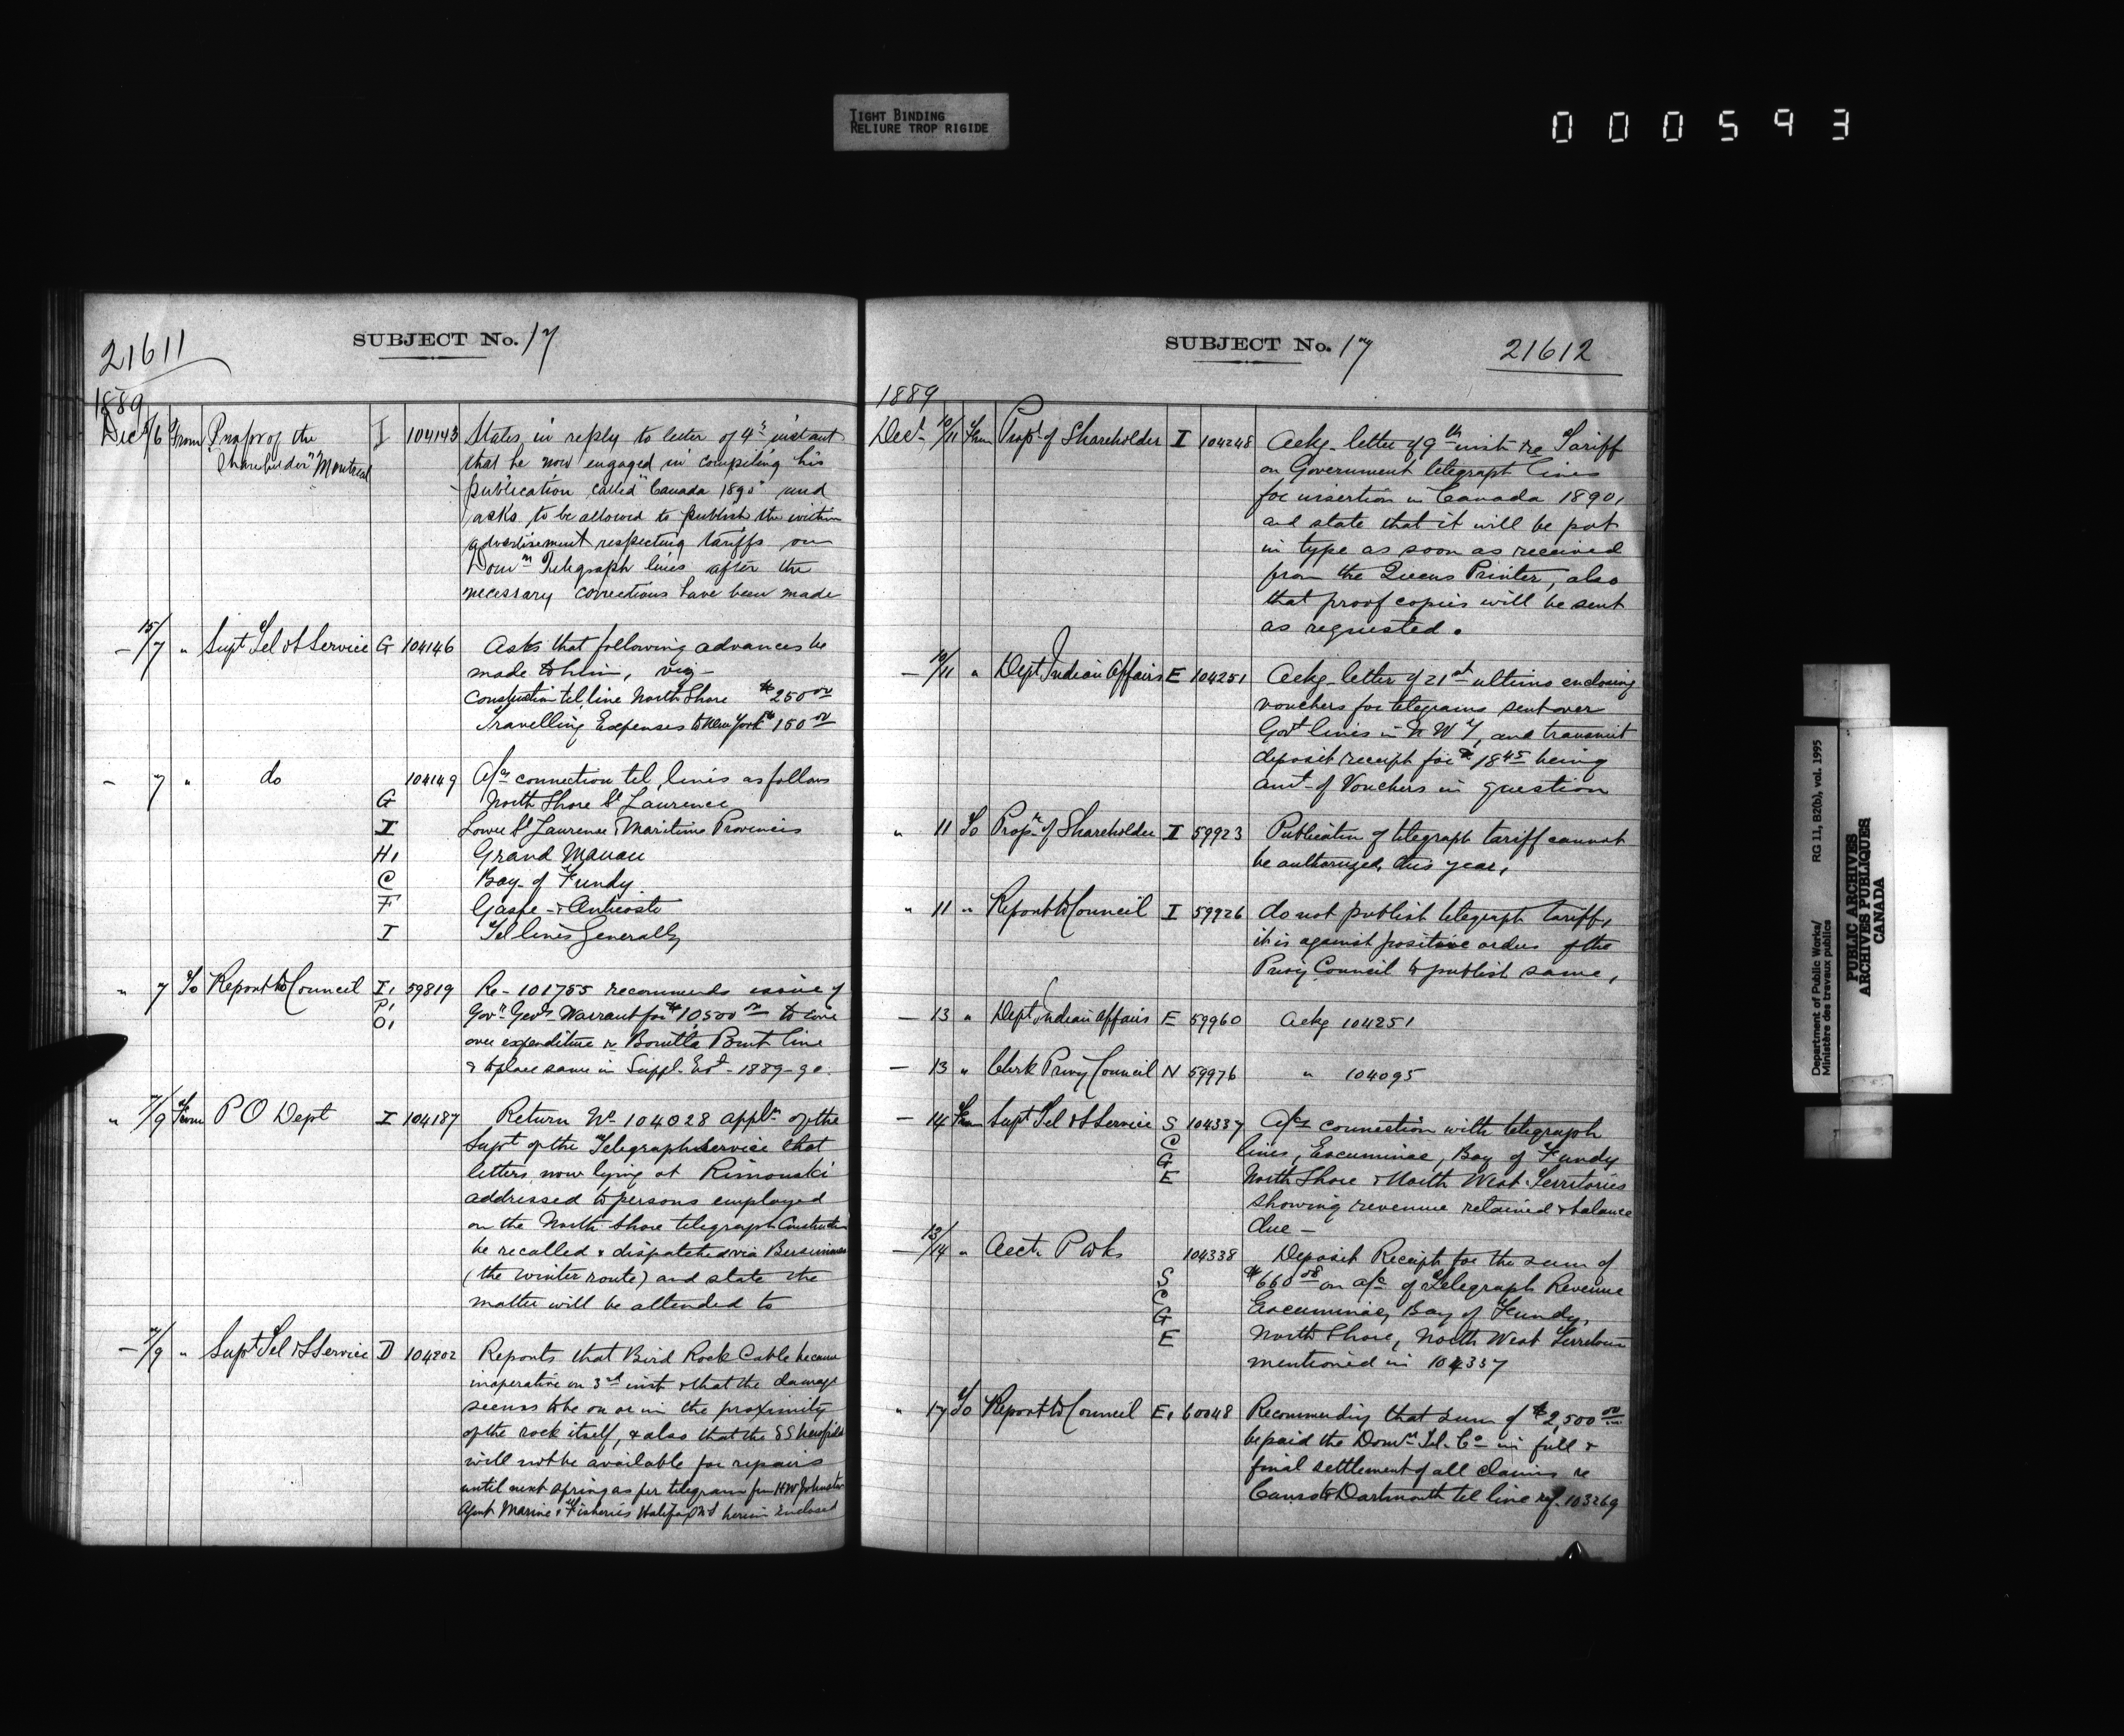 TIGHT BINDING
RELIURE TROP RIGIDE
000593
21611
SUBJECT No. 17
1889
Decr 5/6 From Propr of the "Shareholder" Montreal I 104143 States in reply to letter of 4th instant
that he now engaged in compiling his
publication called "Canada 1890" and
asks to be allowed to publish the within
advertisement respecting tariffs on
Domn Telegraph lines after the
necessary corrections have been made
— 15/7 " Supt Tel & S Service G 104146 Asks that following advances be
made to him, viz—
Construction tel. line North Shore $250 00
Travelling Expenses to New York $150 00
— 7 " do 104149 A/cs connection tel. lines as follows
G North Shore St Laurence
I Lower St Laurence & Maritime Provinces
H, Grand Manan
C Bay of Fundy
F Gaspe & Anticosti
I Tel lines Generally
" 7 To Report to Council I, 59819 Re - 101755 recommends issue of
P, Govr Genls Warrant for $10500 00 to
O, over expenditure re Point line
& to place same in Suppl. Est - 1889-90.
" 7/9 From P O Dept I 104187 Return No 104028 appln of the
Supt of the Telegraph service that
letters now lying at Rimouski
addressed to persons employed
on the North Shore telegraph Construction
be recalled & dispatched via Bersimis
(the winter route) and state the
matter will be attended to
— 7/9 " Supt Tel & S Service D 104202 Reports that Bird Rock Cable became
inoperative on 3rd inst & that the damage
seems to be on or in the proximity
of the rock itself, & also that the SS Newfield
will not be available for repairs
until next spring as per telegram from H W Johnston
Agent Marine & Fisheries Halifax N S herein enclosed
SUBJECT No. 17
21612
1889
Decr 10/11 From Propr of Shareholder I 104248 Ackg letter of 9th inst re Tariff
on Government telegraph lines
for insertion in Canada 1890,
and state that it will be put
in type as soon as received
from the Queens Printer, also
that proof copies will be sent
as requested.
— 10/11 " Dept Indian Affairs E 104251 Ackg letter of 21st ultimo enclosing
vouchers for telegrams sent over
Govt lines in N W T, and transmit
deposit receipt for $18 45 being
amt of Vouchers in question
" 11 To Propr of Shareholder I 59923 Publication of telegraph tariff cannot
be authorized this year,
" 11 " Report to Council I 59926 do not publish telegraph tariff,
it is against positive orders of the
Privy Council to publish same,
— 13 " Dept Indian Affairs E 59960 Ackg 104251
— 13 " Clerk Privy Council N 59976 " 104095
— 14 From Supt Tel & S Service S 104337 A/cs connection with telegraph
C lines, Escuminac, Bay of Fundy
G
E North Shore & North West Territories
showing revenue retained & balance
due —
— 13/14 " Acct P Wks 104338 Deposit Receipt for the sum of
S $660 08 on a/c of Telegraph Revenue
C Escuminac, Bay of Fundy,
G
E North Shore, North West Territories
mentioned in 104337
" 17 To Report to Council E, 60048 Recommending that sum of $2,500 00
be paid the Domn Tel. Co in full &
final settlement of all claims re
Canso & Dartmouth tel line ref. 103269
Department of Public Works/
Ministère des travaux publics
RG 11, B2(b), vol. 1995
PUBLIC ARCHIVES
ARCHIVES PUBLIQUES
CANADA